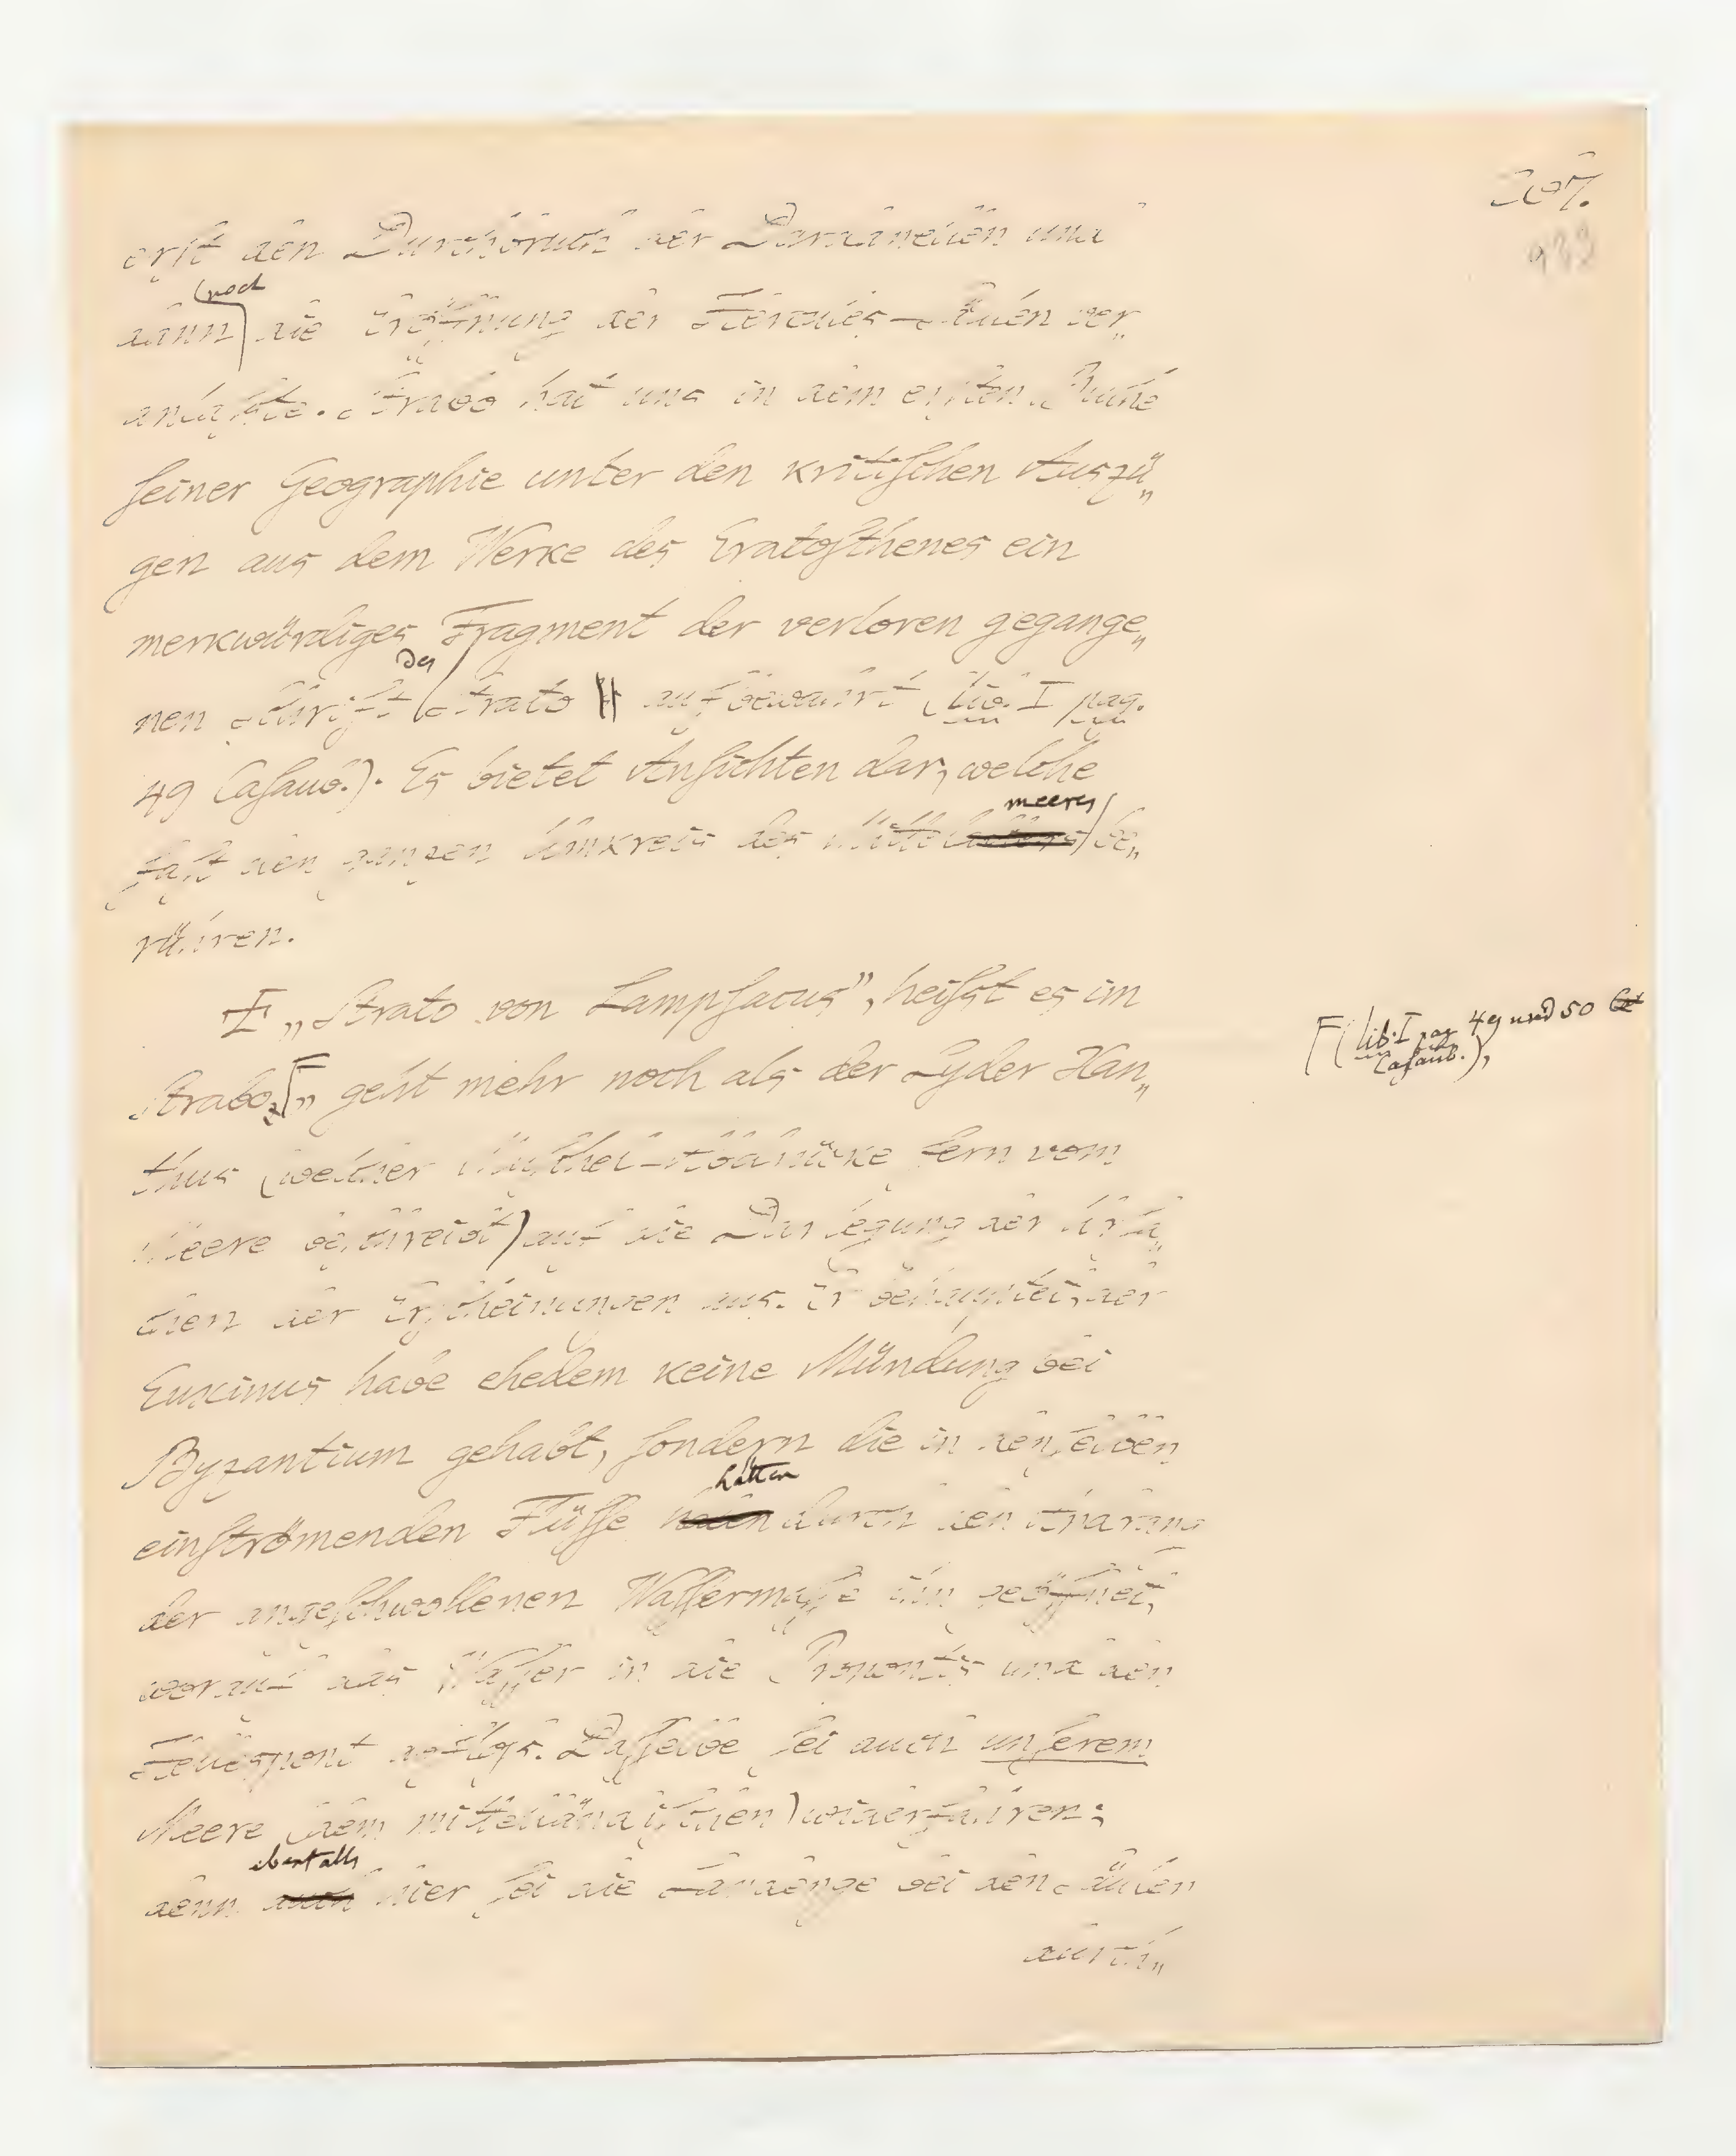 207.
erst den Durchbruch der Dardanellen und
dann noch die Eröffnung der Hercules-Säulen ver„
anlaßte. Strabo hat uns in dem ersten Buche
seiner Geographie unter den kritischen Auszü„
gen aus dem Werke des Eratosthenes ein
merkwürdiges Fragment der verloren gegange„
nen Schrift des Strato aufbewahrt (lib. I pag.
49 Casaub.). Es bietet Ansichten dar, welche
fast den ganzen Umkreis des Mittelmeeres be„
rühren.
„Strato von Lampsacus", heißt es im
Strabo „geht mehr noch als der Lyder Xan„
F(lib. I pag 49 und 50
Casaub.),
thus (welcher Muschel-Abdrücke fern vom
Meere beschreibt) auf die Darlegung der Ursa„
chen der Erscheinungen aus. Er behauptet, der
Euxinus habe ehedem keine Mündung bei
Byzantium gehabt, sondern die in denselben
einströmenden Flüsse hätten durch den Andrang
der angeschwollenen Wassermasse ihn geöffnet,
worauf das Wasser in die Propontis und den
Hellespont abfloß. Dasselbe sei auch unserem
Meere (dem mittelländischen) widerfahren;
denn ebenfalls hier sei die Landenge bei den Säulen
durch„